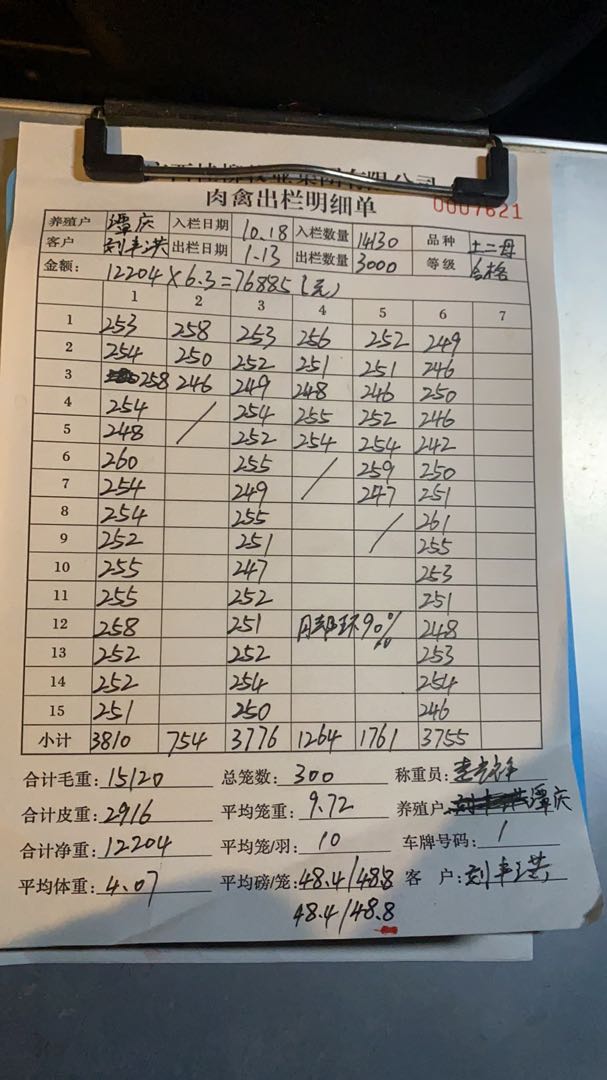 肉禽出栏明细单
0007621
养殖户 谭庆 入栏日期 10.18 入栏数量 14130 品种 土二母
客户 刘丰洪 出栏日期 1.13 出栏数量 3000 等级 合格
金额: 12204×6.3=76885(元)
1 2 3 4 5 6 7
1 253 258 253 256 252 249
2 254 250 252 251 251 246
3 258 246 249 248 246 250
4 254 / 254 255 252 246
5 248 252 254 254 242
6 260 255 / 259 250
7 254 249 247 251
8 254 255 / 261
9 252 251 255
10 255 247 253
11 255 252 251
12 258 251 脚环90% 248
13 252 252 253
14 252 254 254
15 251 250 246
小计 3810 754 3776 1264 1761 3755
合计毛重: 15120 总笼数: 300 称重员:
合计皮重: 2916 平均笼重: 9.72 养殖户: 谭庆
合计净重: 12204 平均笼/羽: 10 车牌号码: 1
平均体重: 4.07 平均磅/笼: 48.4/48.8 客 户: 刘丰洪
48.4/48.8